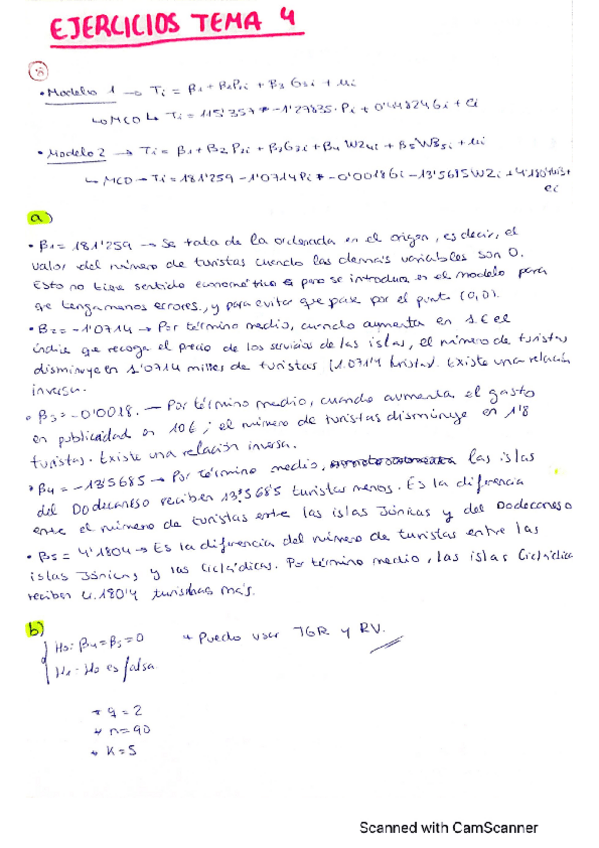 EJERCICIOS TEMA 4
• Modelo 1 → Ti = β1 + β2Pi + β3 Gi + ui
↳ MCO ↳ Ti = 115'357 - 1'27835 · Pi + 0'418246i + ei
• Modelo 2 → Ti = β1 + β2 Pi + β3Gi + β4 W2i + β5W3i + ui
↳ MCO → Ti = 181'259 - 1'0714Pi - 0'0018Gi - 13'5685W2i + 4'1804W3i +
ei
a)
• β1 = 181'259 → Se trata de la ordenada en el origen, es decir, el
valor del número de turistas cuando las demás variables son 0.
Esto no tiene sentido económico pero se introduce en el modelo para
que tenga menos errores, y para evitar que pase por el punto (0,0).
• β2 = -1'0714 → Por término medio, cuando aumenta en 1 € el
índice que recoge el precio de los servicios de las islas, el número de turistas
disminuye en 1'0714 miles de turistas (1.071'4 turistas). Existe una relación
inversa.
• β3 = -0'0018. — Por término medio, cuando aumenta el gasto
en publicidad en 10€; el número de turistas disminuye en 1'8
turistas. Existe una relación inversa.
• β4 = -13'5685 → Por término medio, las islas
del Dodecaneso reciben 13.568'5 turistas menos. Es la diferencia
entre el número de turistas entre las islas Jónicas y del Dodecaneso
• β5 = 4'1804 → Es la diferencia del número de turistas entre las
islas Jónicas y las Cicládicas. Por término medio, las islas Cicládicas
reciben 4.180'4 turistas más.
b)
H0: β4 = β5 = 0 → Puedo usar TGR y RV.
H1: H0 es falsa
→ q = 2
→ n = 90
→ K = 5
Scanned with CamScanner